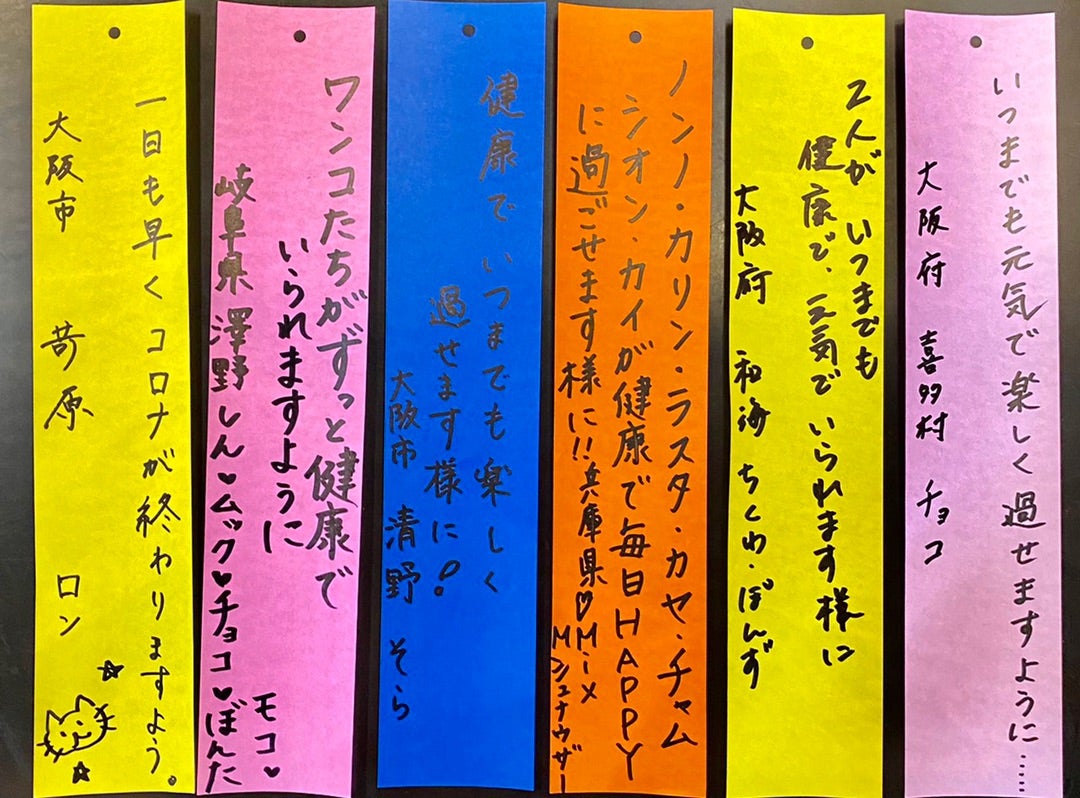 いつまでも元気で楽しく過せますように……
大阪府 喜多村 チョコ
2人が いつまでも
健康で、元気でいられます様に
大阪府 和海 ちくわ・ぽんず
ノンノ・カリン・ラスタ・カヤ・チャム
シオン・カイが健康で毎日HAPPY
に過ごせます様に!!兵庫県♡Mix
Mシュナウザー
健康でいつまでも楽しく
過せます様に!
大阪市 清野 そら
ワンコたちがずっと健康で
いられますように
モコ♥
岐阜県 澤野しん♥ムック♥チョコ♥ぼんた
一日も早くコロナが終わりますよう。
大阪市 苛原 ロン